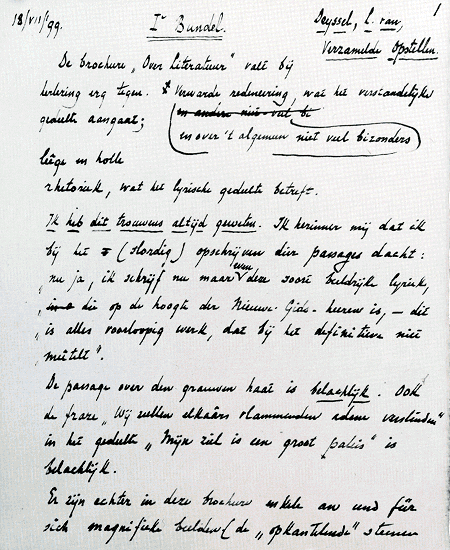 18/VII/'99.
Iᵉ Bundel.
Deyssel, L. van,
1
Verzamelde Opstellen.
De brochure „Over Literatuur" valt bij
herlezing erg tegen. Verwarde redeneering, wat het verstandelijke
gedeelte aangaat;
en over 't algemeen niet veel bizonders
leêge en holle
rhetoriek, wat het lyrische gedeelte betreft.
Ik heb dit trouwens altijd geweten. Ik herinner mij dat ik
bij het (slordig) opschrijven dier passages dacht:
„nu ja, ik schrijf nu maar even deze soort beeldrijke lyriek,
„die op de hoogte der Nieuwe-Gids-heeren is, — dit
„is alles voorloopig werk, dat bij het definitieve niet
meêtelt".
De passage over den grauwen haat is belachlijk. Ook
de fraze „Wij zullen elkaârs vlammenden adem verslinden"
in het gedeelte „Mijn ziel is een groot paleis" is
belachlijk.
Er zijn echter in deze brochure enkele an und für
sich magnifieke beelden (de „opkantelende" steenen